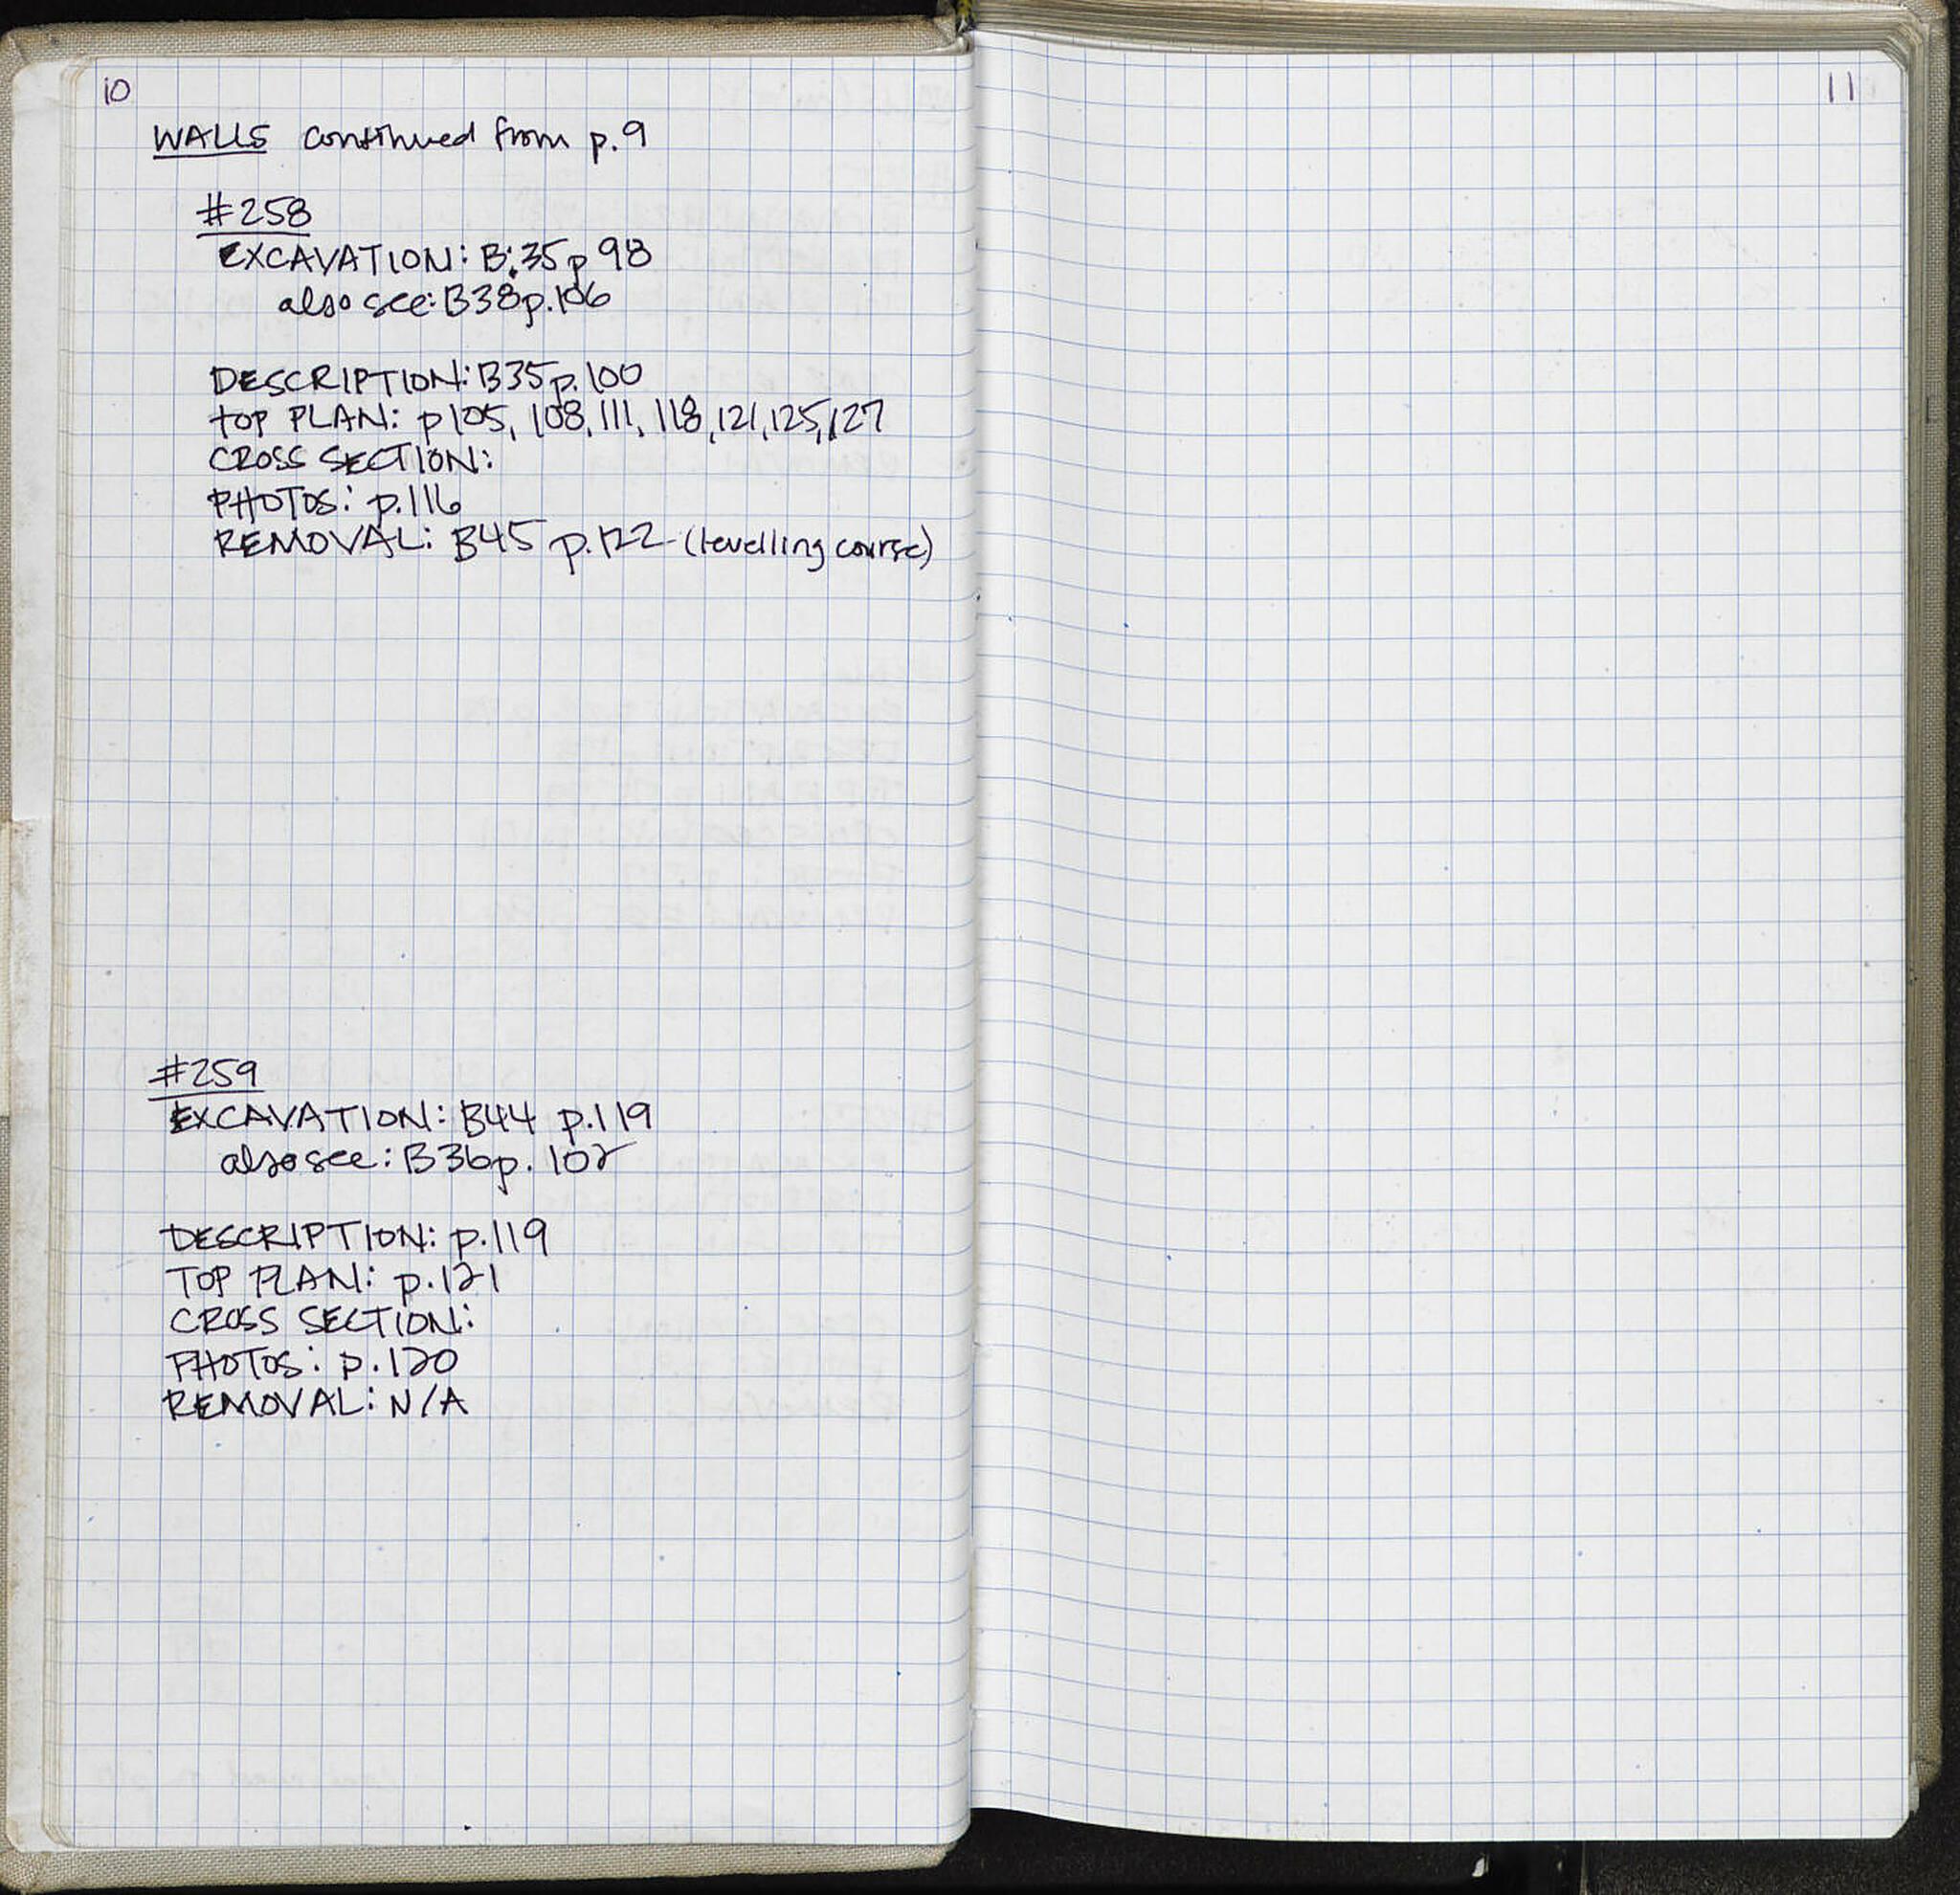 10
WALLS continued from p.9
#258
EXCAVATION: B:35p 98
also see: B38p.106
DESCRIPTION: B35p.100
TOP PLAN: p105, 108, 111, 118, 121, 125, 127
CROSS SECTION:
PHOTOS: p.116
REMOVAL: B45 p.122 (levelling course)
#259
EXCAVATION: B44 p.119
also see: B36p. 102
DESCRIPTION: p.119
TOP PLAN: p.121
CROSS SECTION:
PHOTOS: p.120
REMOVAL: N/A
11